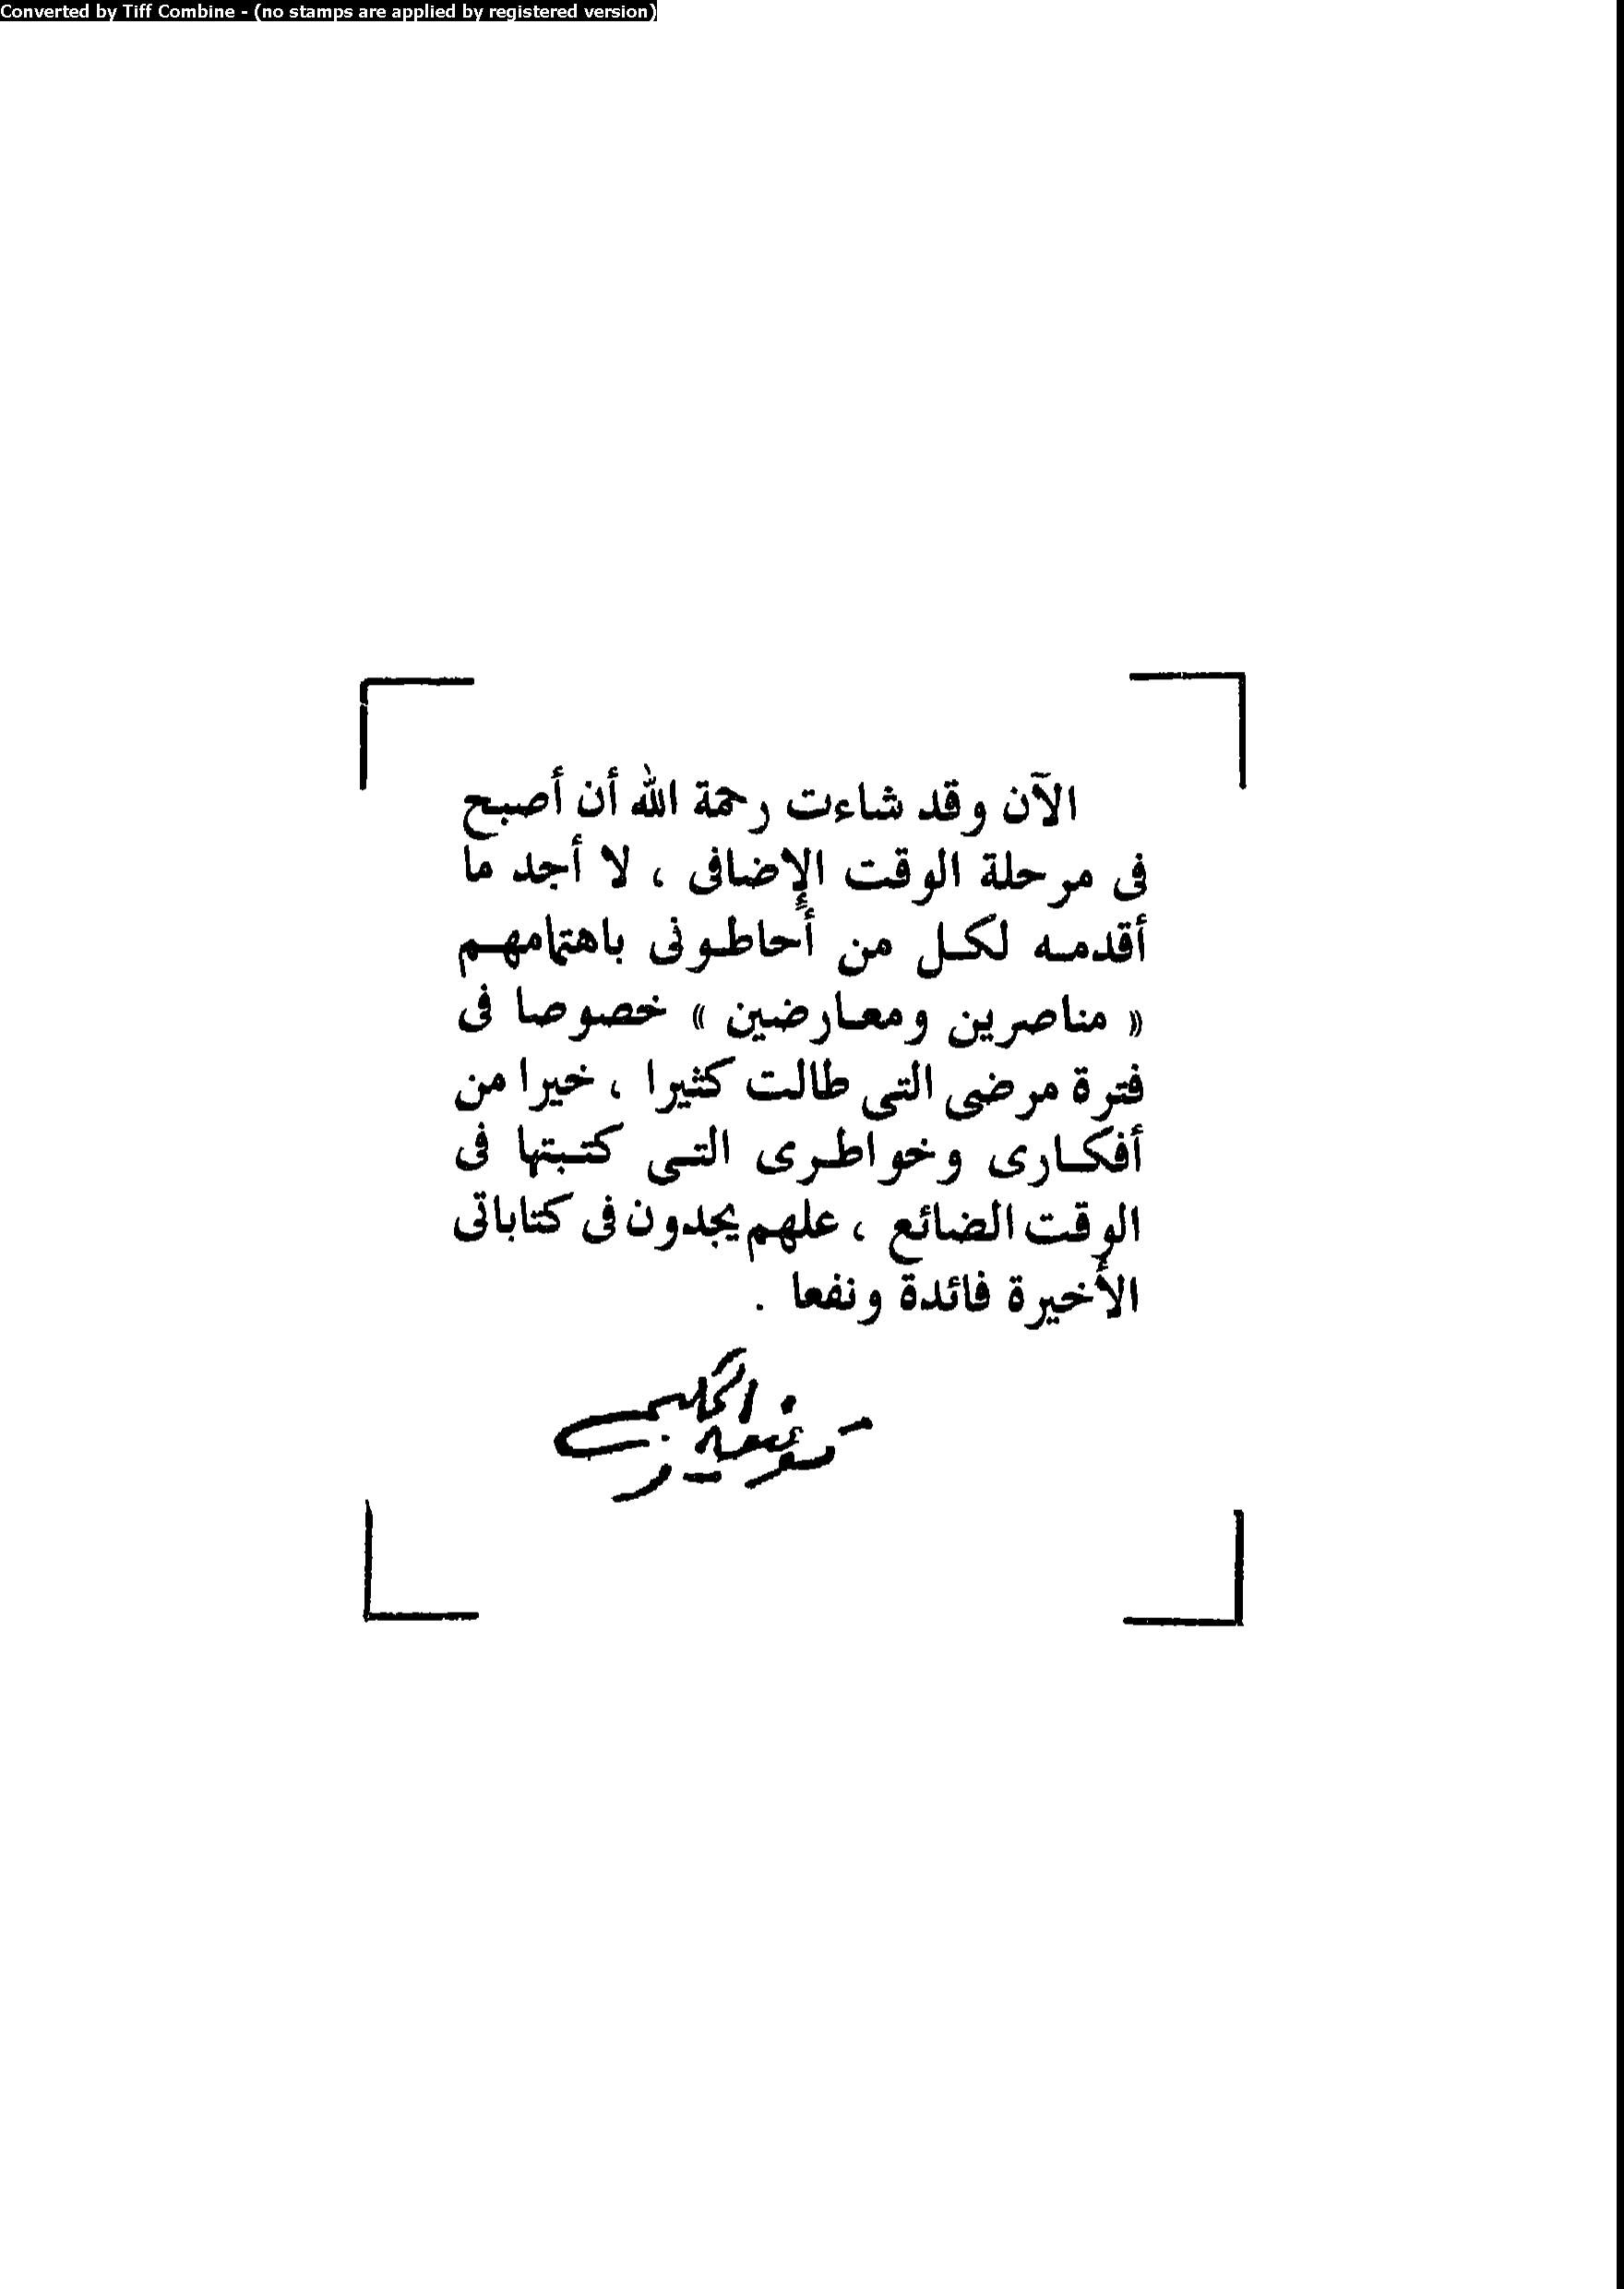 Converted by Tiff Combine - (no stamps are applied by registered version)
الآن وقد شاءت رحمة الله أن أصبح
فى مرحلة الوقت الإضافى ، لا أجد ما
أقدمه لكل من أحاطونى باهتمامهم
« مناصرين ومعارضين » خصوصا فى
فترة مرضى التى طالت كثيرا ، خيرا من
أفكارى وخواطرى التى كتبتها فى
الوقت الضائع ، علهم يجدون فى كتاباتى
الأخيرة فائدة ونفعا .
توفيق الحكيم